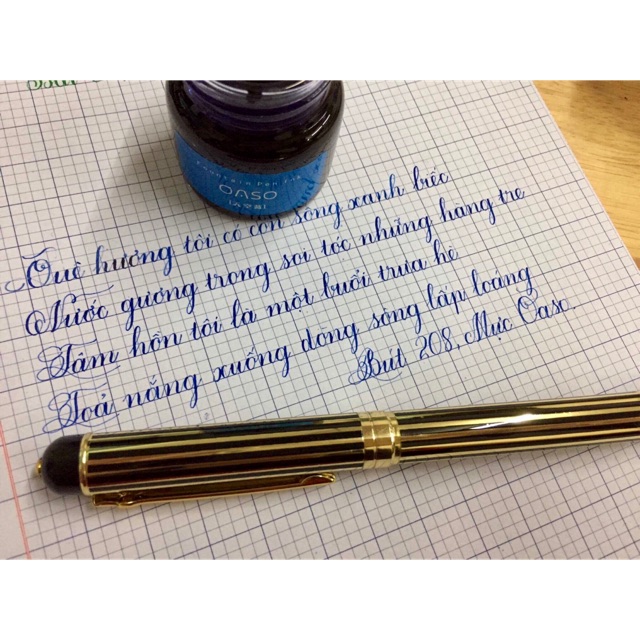 Fountain Pen Ink
OASO
Quê hương tôi có con sông xanh biếc
Nước gương trong soi tóc những hàng tre
Tâm hồn tôi là một buổi trưa hè
Toả nắng xuống dòng sông lấp loáng
Bút 208, Mực Oaso.